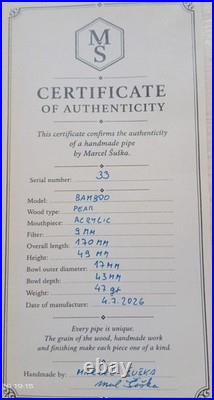 M
Š
CERTIFICATE
OF AUTHENTICITY
This certificate confirms the authenticity
of a handmade pipe
by Marcel Šuška.
Serial number: 33
Model: BAMBOO
Wood type: PEAR
Mouthpiece: ACRYLIC
Filter: 9 MM
Overall length: 170 MM
Height: 49 MM
Bowl outer diameter: 17 MM
Bowl depth: 43 MM
Weight: 47 gr
Date of manufacture: 4.7.2026
Every pipe is unique.
The grain of the wood, handmade work
and finishing make each piece one of a kind.
Handmade by: MARCEL ŠUŠKA